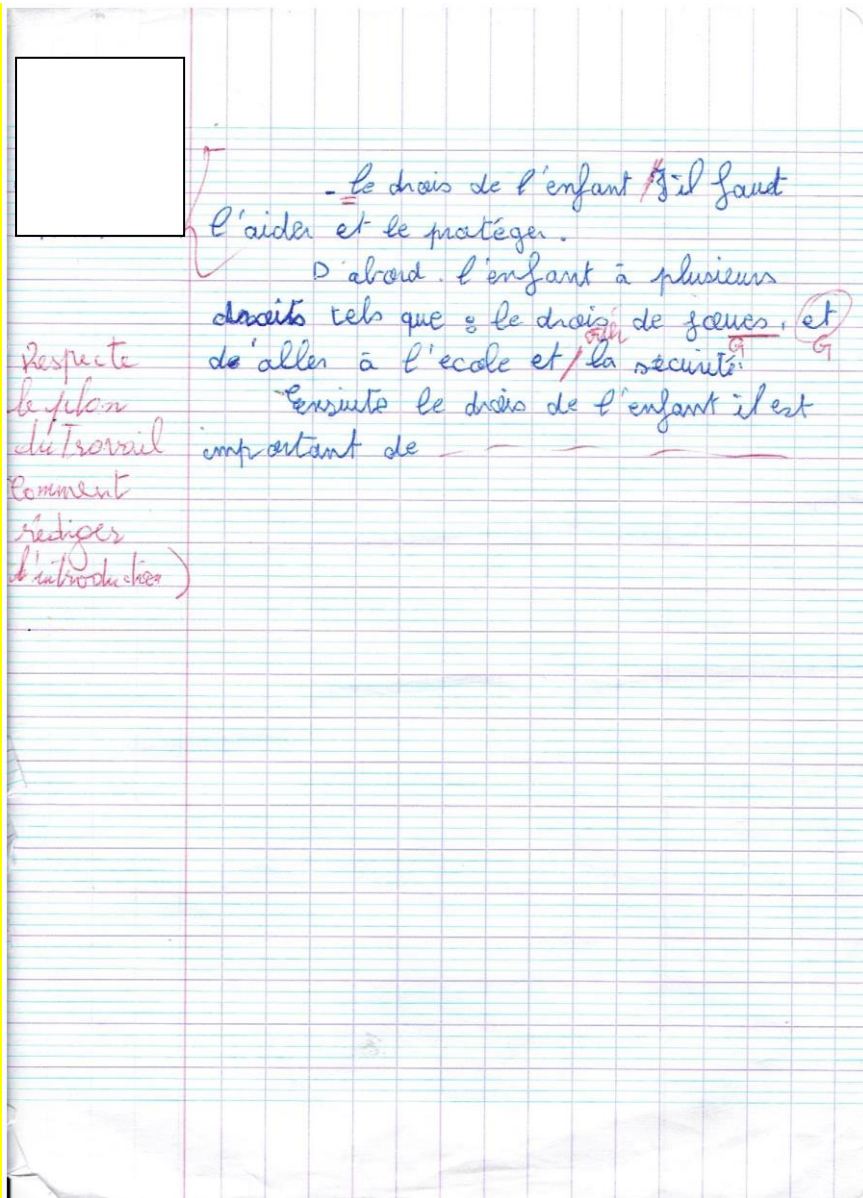 - le drois de l'enfant s'il faut
l'aider et le protéger.
D'abord. l'enfant à plusieurs
droits tels que : le drois de joeues, et
de aller à l'école et la sécurité.
Ensuite le drois de l'enfant il est
important de
Respecte
le plan
du Travail
Comment
rédiger
l'introduction)
G
G